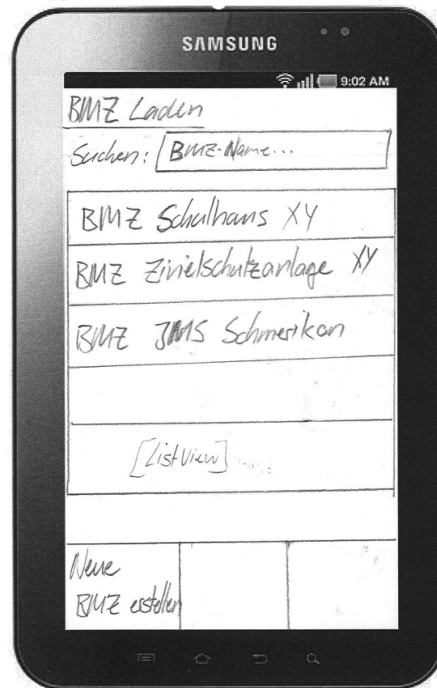 SAMSUNG
9:02 AM
BMZ Laden
Suchen: BMZ-Name...
BMZ Schulhaus XY
BMZ Zivielschutzanlage XY
BMZ JMS Schmerikon
[ListView]
Neue
BMZ erstellen